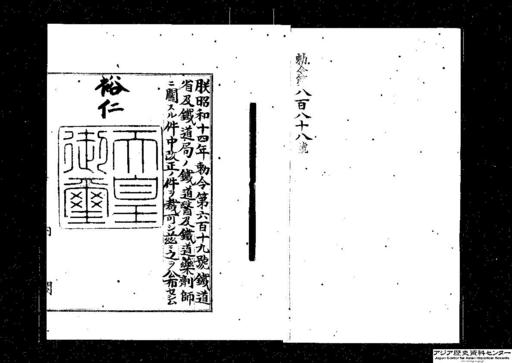 勅令第八百八十八號
朕昭和十四年勅令第六百十九號鐵道
省及鐵道局ノ鐵道醫及鐵道藥劑師
ニ關スル件中改正ノ件ヲ裁可シ茲ニ之ヲ公布セシム
裕仁
天皇
御璽
内閣
アジア歴史資料センター
Japan Center for Asian Historical Records